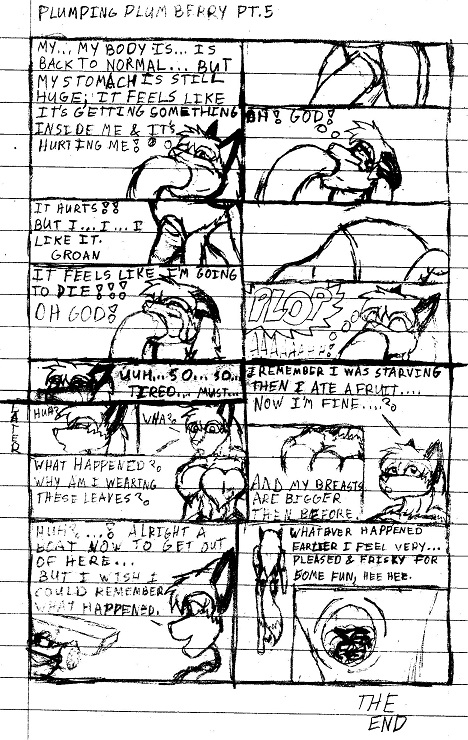 PLUMPING PLUM BERRY PT.5
MY... MY BODY IS... IS
BACK TO NORMAL... BUT
MY STOMACH IS STILL
HUGE; IT FEELS LIKE
IT'S GETTING SOMETHING
INSIDE ME & IT'S
HURTING ME!
OH! GOD!
IT HURTS!!
BUT I... I... I
LIKE IT.
GROAN
IT FEELS LIKE I'M GOING
TO DIE!!!
OH GOD!
PLOP!
UUH... SO... SO...
TIRED... MUST...
LATER
HUH?
WHA?
WHAT HAPPENED?
WHY AM I WEARING
THESE LEAVES?
I REMEMBER I WAS STARVING
THEN I ATE A FRUIT....
NOW I'M FINE....?
AND MY BREASTS
ARE BIGGER
THEN BEFORE.
HUH?...! ALRIGHT A
BOAT NOW TO GET OUT
OF HERE...
BUT I WISH I
COULD REMEMBER
WHAT HAPPENED.
WHATEVER HAPPENED
EARLIER I FEEL VERY...
PLEASED & FRISKY FOR
SOME FUN, HEE HEE.
THE
END